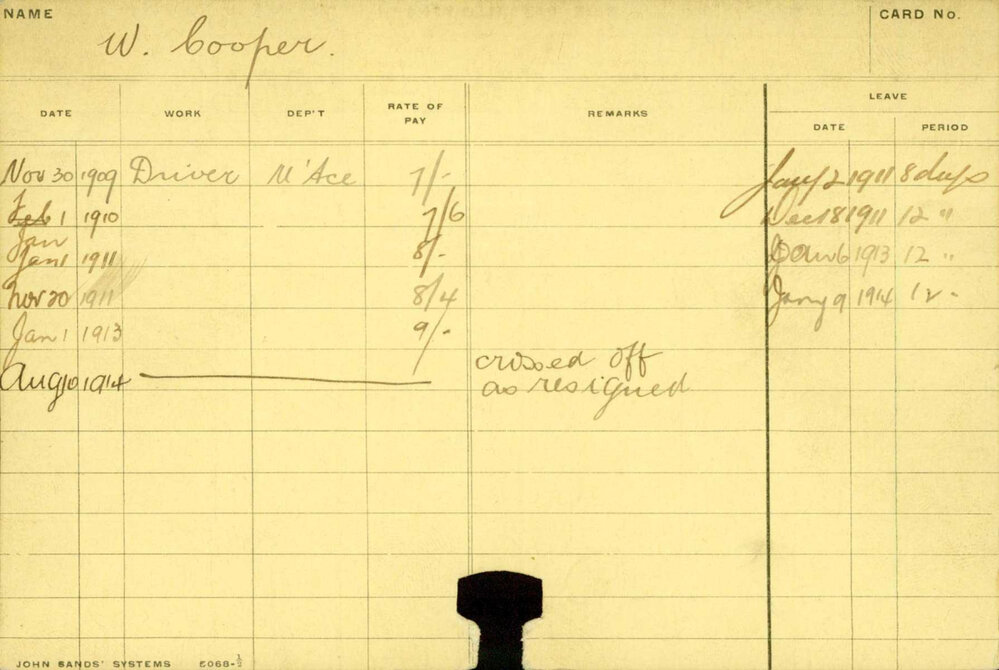 NAME
CARD No.
W. Cooper.
DATE WORK DEP'T RATE OF PAY REMARKS LEAVE
DATE PERIOD
Nov 30 1909 Driver M'Ace 7/- Jany 2 1911 8 days
Feb 1 1910 7/6 Dec 18 1911 12 "
Jan
Jan 1 1911 8/- Jan 6 1913 12 "
Nov 20 1911 8/4 Jany 9 1914 12 -
Jan 1 1913 9/-
Aug 10 1914 crossed off
as resigned
JOHN SANDS' SYSTEMS 5068-½